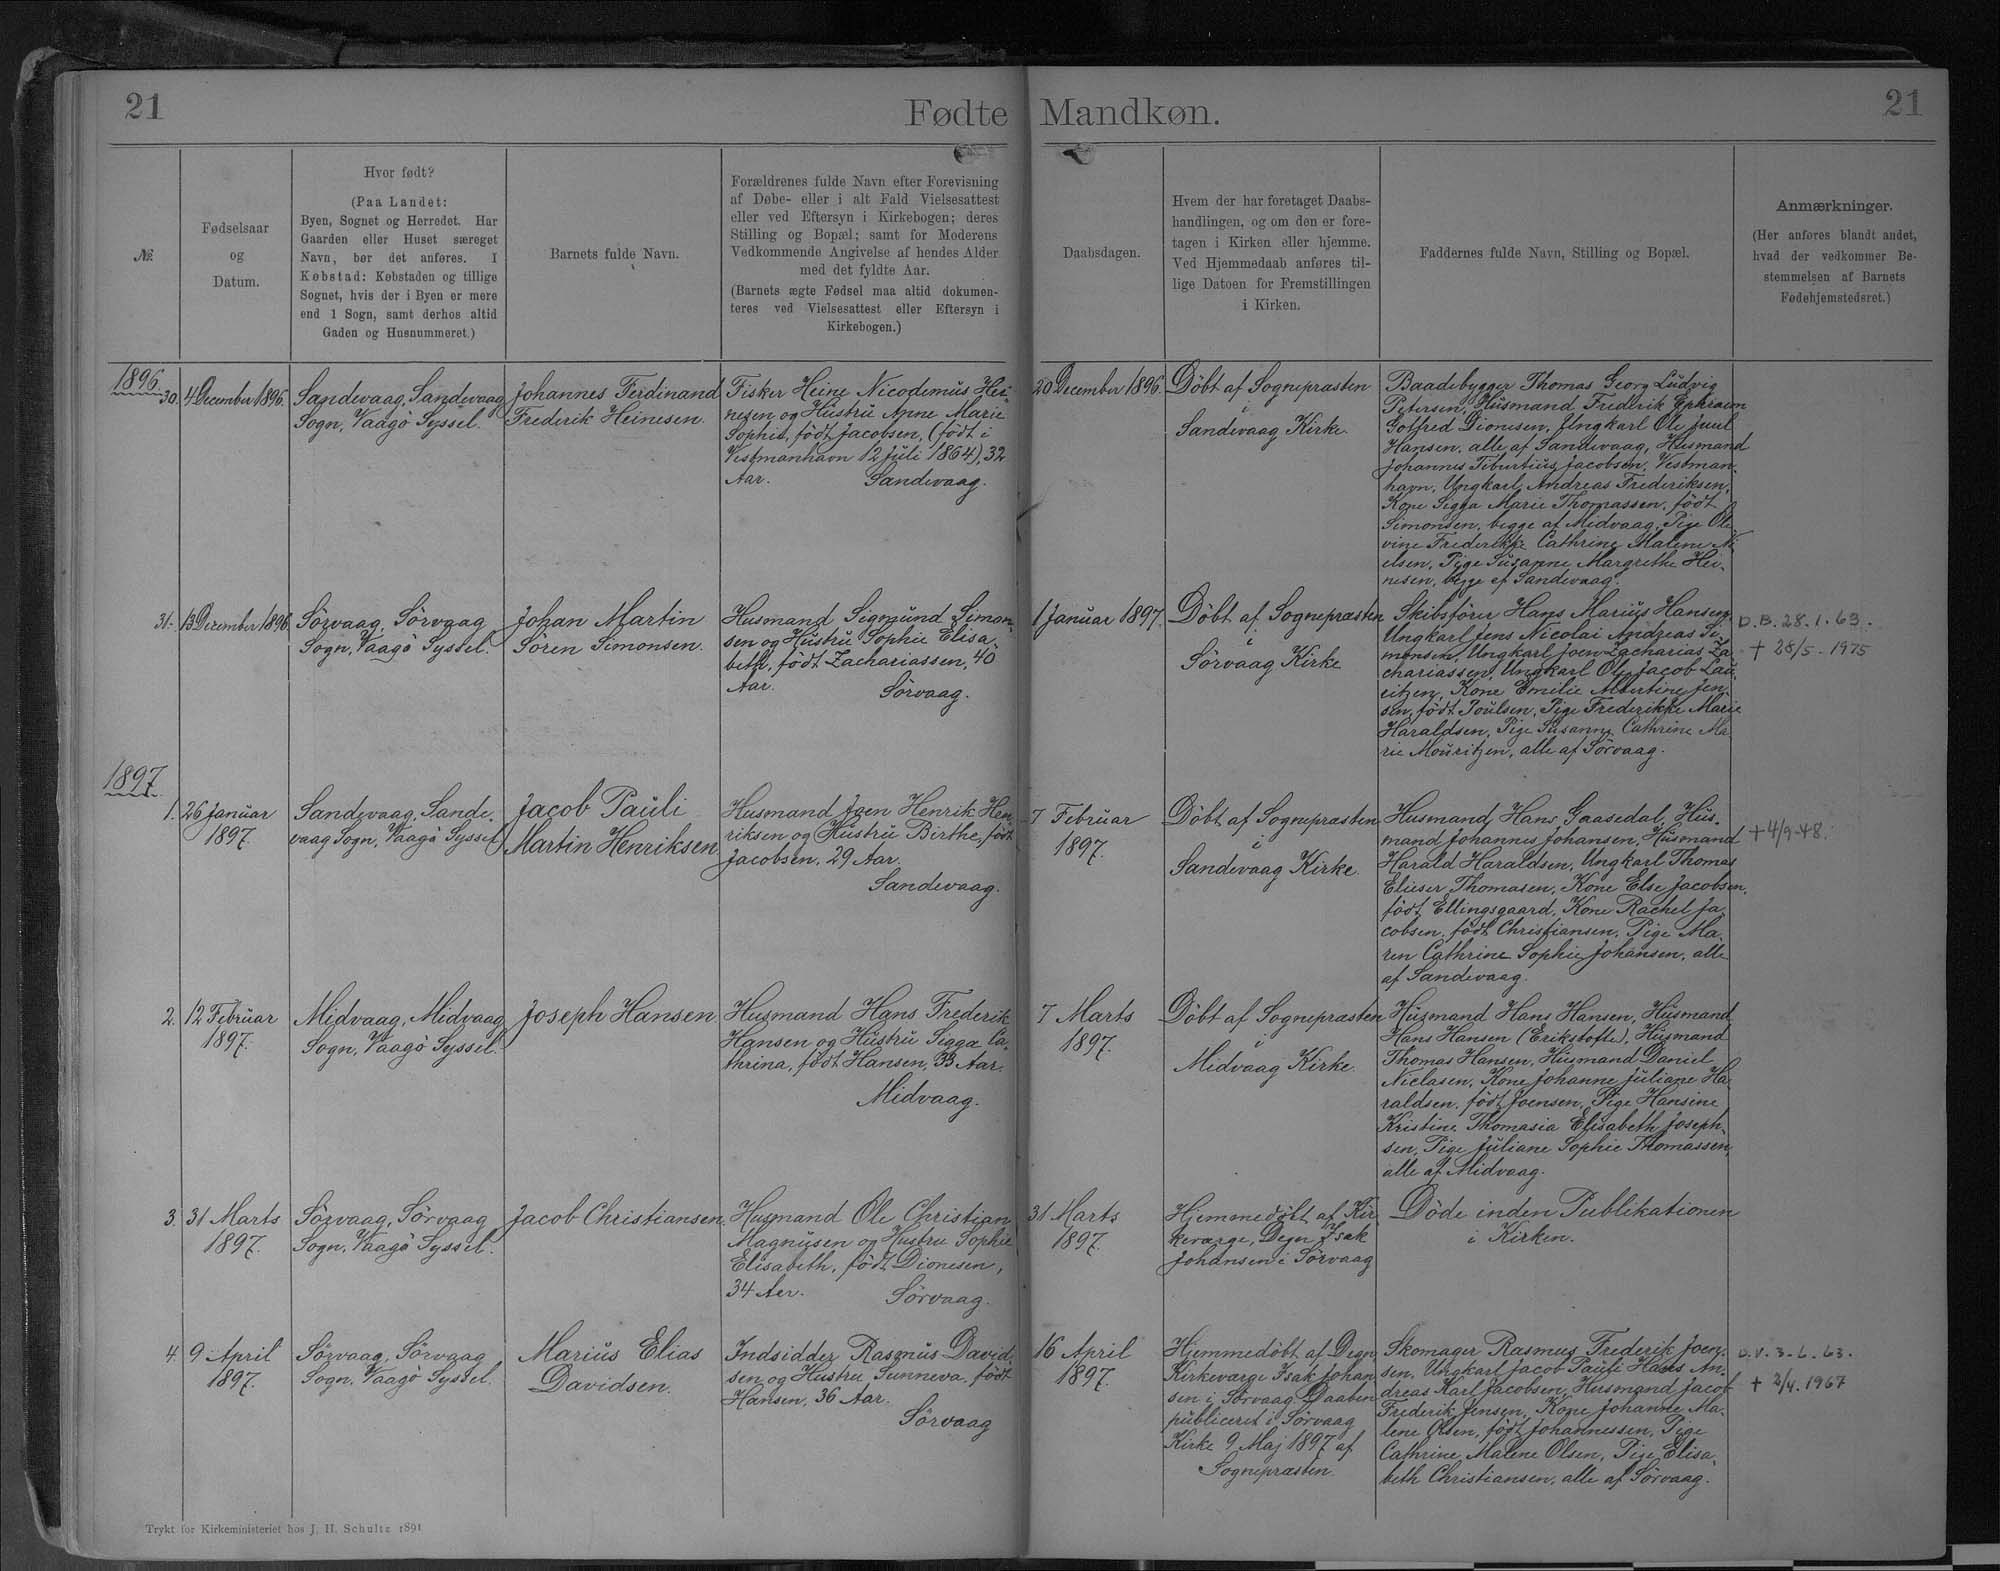 21
Fødte Mandkøn.
21
№
Fødselsaar
og
Datum.
Hvor født?
(Paa Landet:
Byen, Sognet og Herredet. Har
Gaarden eller Huset særeget
Navn, bør det anføres. I
Købstad: Købstaden og tillige
Sognet, hvis der i Byen er mere
end 1 Sogn, samt derhos altid
Gaden og Husnummeret.)
Barnets fulde Navn.
Forældrenes fulde Navn efter Forevisning
af Døbe- eller i alt Fald Vielsesattest
eller ved Eftersyn i Kirkebogen; deres
Stilling og Bopæl; samt for Moderens
Vedkommende Angivelse af hendes Alder
med det fyldte Aar.
(Barnets ægte Fødsel maa altid dokumen-
teres ved Vielsesattest eller Eftersyn i
Kirkebogen.)
Daabsdagen.
Hvem der har foretaget Daabs-
handlingen, og om den er fore-
tagen i Kirken eller hjemme.
Ved Hjemmedaab anføres til-
lige Datoen for Fremstillingen
i Kirken.
Faddernes fulde Navn, Stilling og Bopæl.
Anmærkninger.
(Her anføres blandt andet,
hvad der vedkommer Be-
stemmelsen af Barnets
Fødehjemstedsret.)
1896.
30.
4 December 1896.
Sandevaag, Sandevaag
Sogn, Vaagö Syssel.
Johannes Ferdinand
Frederik Heinesen.
Fisker Heine Nicodemus Hei-
nesen og Hustru Anne Marie
Sophie, födt Jacobsen, (födt i
Vestmanhavn 12 Juli 1864), 32
Aar.
Sandevaag.
20 December 1896.
Döbt af Sognepræsten
i
Sandevaag Kirke.
Baadebygger Thomas Georg Ludvig
Petersen, Husmand Frederik Ephraim
Gotfred Dionesen, Ungkarl Ole Juul
Hansen, alle af Sandevaag, Husmand
Johannes Tiburtius Jacobsen, Vestman-
havn, Ungkarl Andreas Frederiksen,
Kone Sigga Marie Thomassen, födt
Simonsen, begge af Midvaag, Pige Ole-
vine Frederikke Cathrine Malene Ni-
elsen, Pige Susanne Margrethe Hei-
nesen, begge af Sandevaag.
31.
13 December 1896
Sörvaag, Sörvaag
Sogn, Vaagö Syssel.
Johan Martin
Sören Simonsen.
Husmand Sigmund Simon-
sen og Hustru Sophie Elisa-
beth, födt Zachariassen, 40
Aar.
Sörvaag.
1 Januar 1897.
Döbt af Sognepræsten
i
Sörvaag Kirke
Skibsförer Hans Marius Hansen,
Ungkarl Jens Nicolai Andreas Si-
monsen, Ungkarl Joen Zacharias Za-
chariassen, Ungkarl Ole Jacob Lau-
ritzen, Kone Emilie Albertine Jen-
sen, födt Poulsen, Pige Frederikke Marie
Haraldsen, Pige Susanne Cathrine Ma-
rie Mouritzen, alle af Sörvaag.
D.B. 28.1.63.
+ 28/5-1975
1897
1.
26 Januar
1897.
Sandevaag, Sande-
vaag Sogn, Vaagö Syssel
Jacob Pauli
Martin Henriksen
Husmand Joen Henrik Hen-
riksen og Hustru Birthe, födt
Jacobsen, 29 Aar.
Sandevaag.
7 Februar
1897.
Döbt af Sognepræsten
i
Sandevaag Kirke.
Husmand Hans Gaasedal, Hus-
mand Johannes Johansen, Husmand
Harald Haraldsen, Ungkarl Thomas
Elieser Thomasen, Kone Else Jacobsen,
födt Ellingsgaard, Kone Rachel Ja-
cobsen, födt Christiansen, Pige Ma-
ren Cathrine Sophie Johansen, alle
af Sandevaag.
+ 4/9-48.
2.
12 Februar
1897.
Midvaag, Midvaag
Sogn, Vaagö Syssel.
Joseph Hansen
Husmand Hans Frederik
Hansen og Hustru Sigga Ca-
thrina, födt Hansen, 33 Aar.
Midvaag.
7 Marts
1897.
Döbt af Sognepræsten
i
Midvaag Kirke.
Husmand Hans Hansen, Husmand
Hans Hansen (Erikstofte), Husmand
Thomas Hansen, Husmand Daniel
Niclasen, Kone Johanne Juliane Ha-
raldsen, födt Joensen, Pige Hansine
Kristine Thomasia Elisabeth Joseph-
sen, Pige Juliane Sophie Thomassen,
alle af Midvaag.
3.
31 Marts
1897.
Sörvaag, Sörvaag
Sogn, Vaagö Syssel.
Jacob Christiansen.
Husmand Ole Christian
Magnusen og Hustru Sophie
Elisabeth, födt Dionesen,
34 Aar.
Sörvaag.
31 Marts
1897.
Hjemmedöbt af Kir-
keværge, Degn Isak
Johansen i Sörvaag
Döde inden Publikationen
i Kirken.
4.
9 April
1897.
Sörvaag, Sörvaag
Sogn, Vaagö Syssel.
Marius Elias
Davidsen.
Indsidder Rasmus David-
sen og Hustru Sunneva, födt
Hansen, 36 Aar.
Sörvaag
16 April
1897.
Hjemmedöbt af Degn,
Kirkeværge Isak Johan-
sen i Sörvaag. Daaben
publiceret i Sörvaag
Kirke 9 Maj 1897 af
Sognepræsten.
Skomager Rasmus Frederik Joen-
sen, Ungkarl Jacob Pauli Hans An-
dreas Karl Jacobsen, Husmand Jacob
Frederik Jensen, Kone Johanne Ma-
lene Olsen, födt Johannessen, Pige
Cathrine Malene Olsen, Pige Elisa-
beth Christiansen, alle af Sörvaag.
D.V. 3.6.63.
+ 2/4.1967
Trykt for Kirkeministeriet hos J. H. Schultz 1891